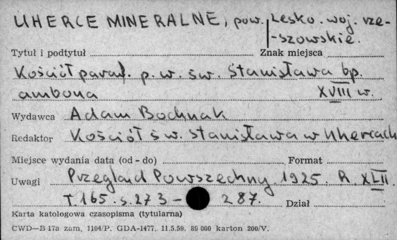 UHERCE MINERALNE, pow. Lesko. woj. rze-
szowskie.
Tytuł i podtytuł Znak miejsca
Kościół paraf. p.w. św. Stanisława bp.
ambona XVIII w.
Wydawca Adam Bochnak
Redaktor Kościół św. Stanisława w Uhercach
Miejsce wydania data (od - do) Format
Uwagi Przegląd Powszechny 1925. R. XLII.
T. 165. s. 273 - 287. Dział
Karta katalogowa czasopisma (tytularna)
CWD—B 17a zam. 1104/P. GDA-1477. 11.5.59. 80 000 karton 200/V.